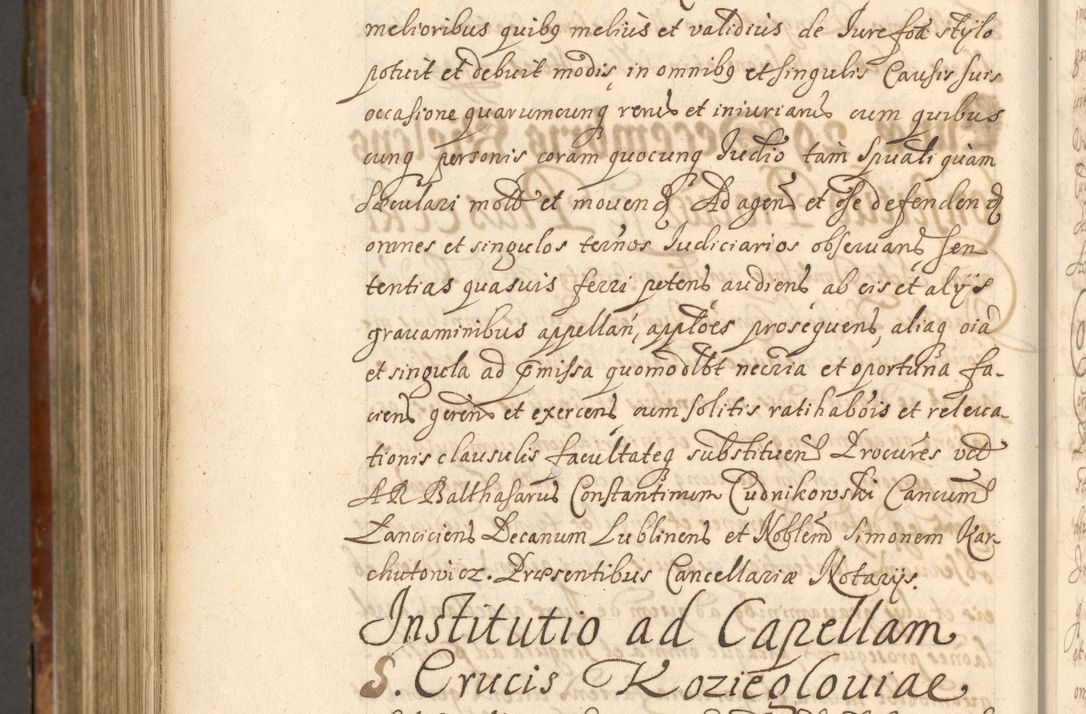 melioribus quibq melius et validius de Iure foa stylo
potuit et debuit modis, in omnibq et singulis Causis suis
occasione quarumcunq renes et iniurians cum quibus
cunq personis coram quocunq Iudio tam Spuali quam
Sæculari mott et movend Ad agend et ose defendend
omnes et singulos teinos Iudiciarios observans sen
tentias quasuis ferri petens audiens ab eis et alijs
gravaminibus appellań, appłões prosequens, aliaq oia
et singula ad pmissa quomodlbt necria et oportuna fa-
ciens gerens et exercens cum solitis ratihabõis et releva-
tionis clausulis facultateq substituens Procures vct
AR Balthasarus Constantinum Cudnikowski Cancum
Lanciciens Decanum Lublinens et Noblem Simonem Kar
chutowicz. Præsentibus Cancellariæ Notarijs.
Institutio ad Capellam
S. Crucis Koziegloviae